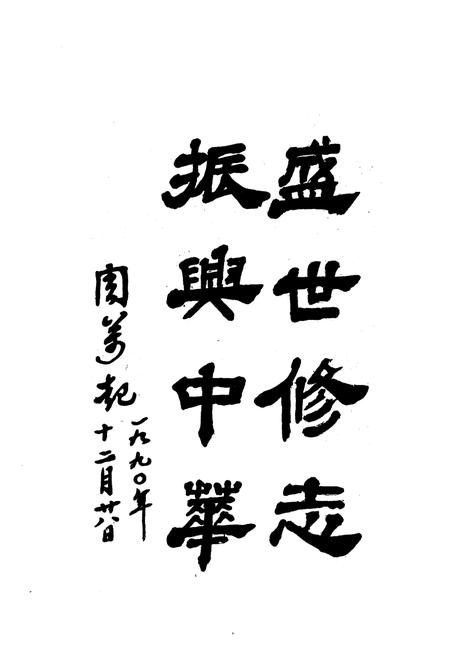 盛世修志
振興中華
一九九〇年
十二月廿八日